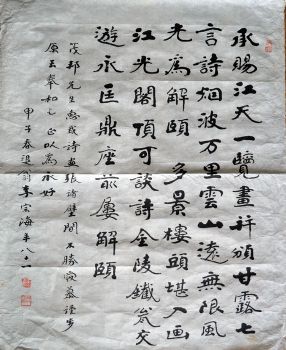 承賜江天一覽畫幷頒甘露七
言詩烟波万里雲山遠無限風
光為解頤 多景樓頭堪入画
江光閣頂可談詩金陵鐵瓮交
遊永匡鼎座前屢解頤
邦先生惠我詩画張诸壁間不勝慕謹步
原玉奉和乞正以為永好
甲子春退翁李宗海年八十一